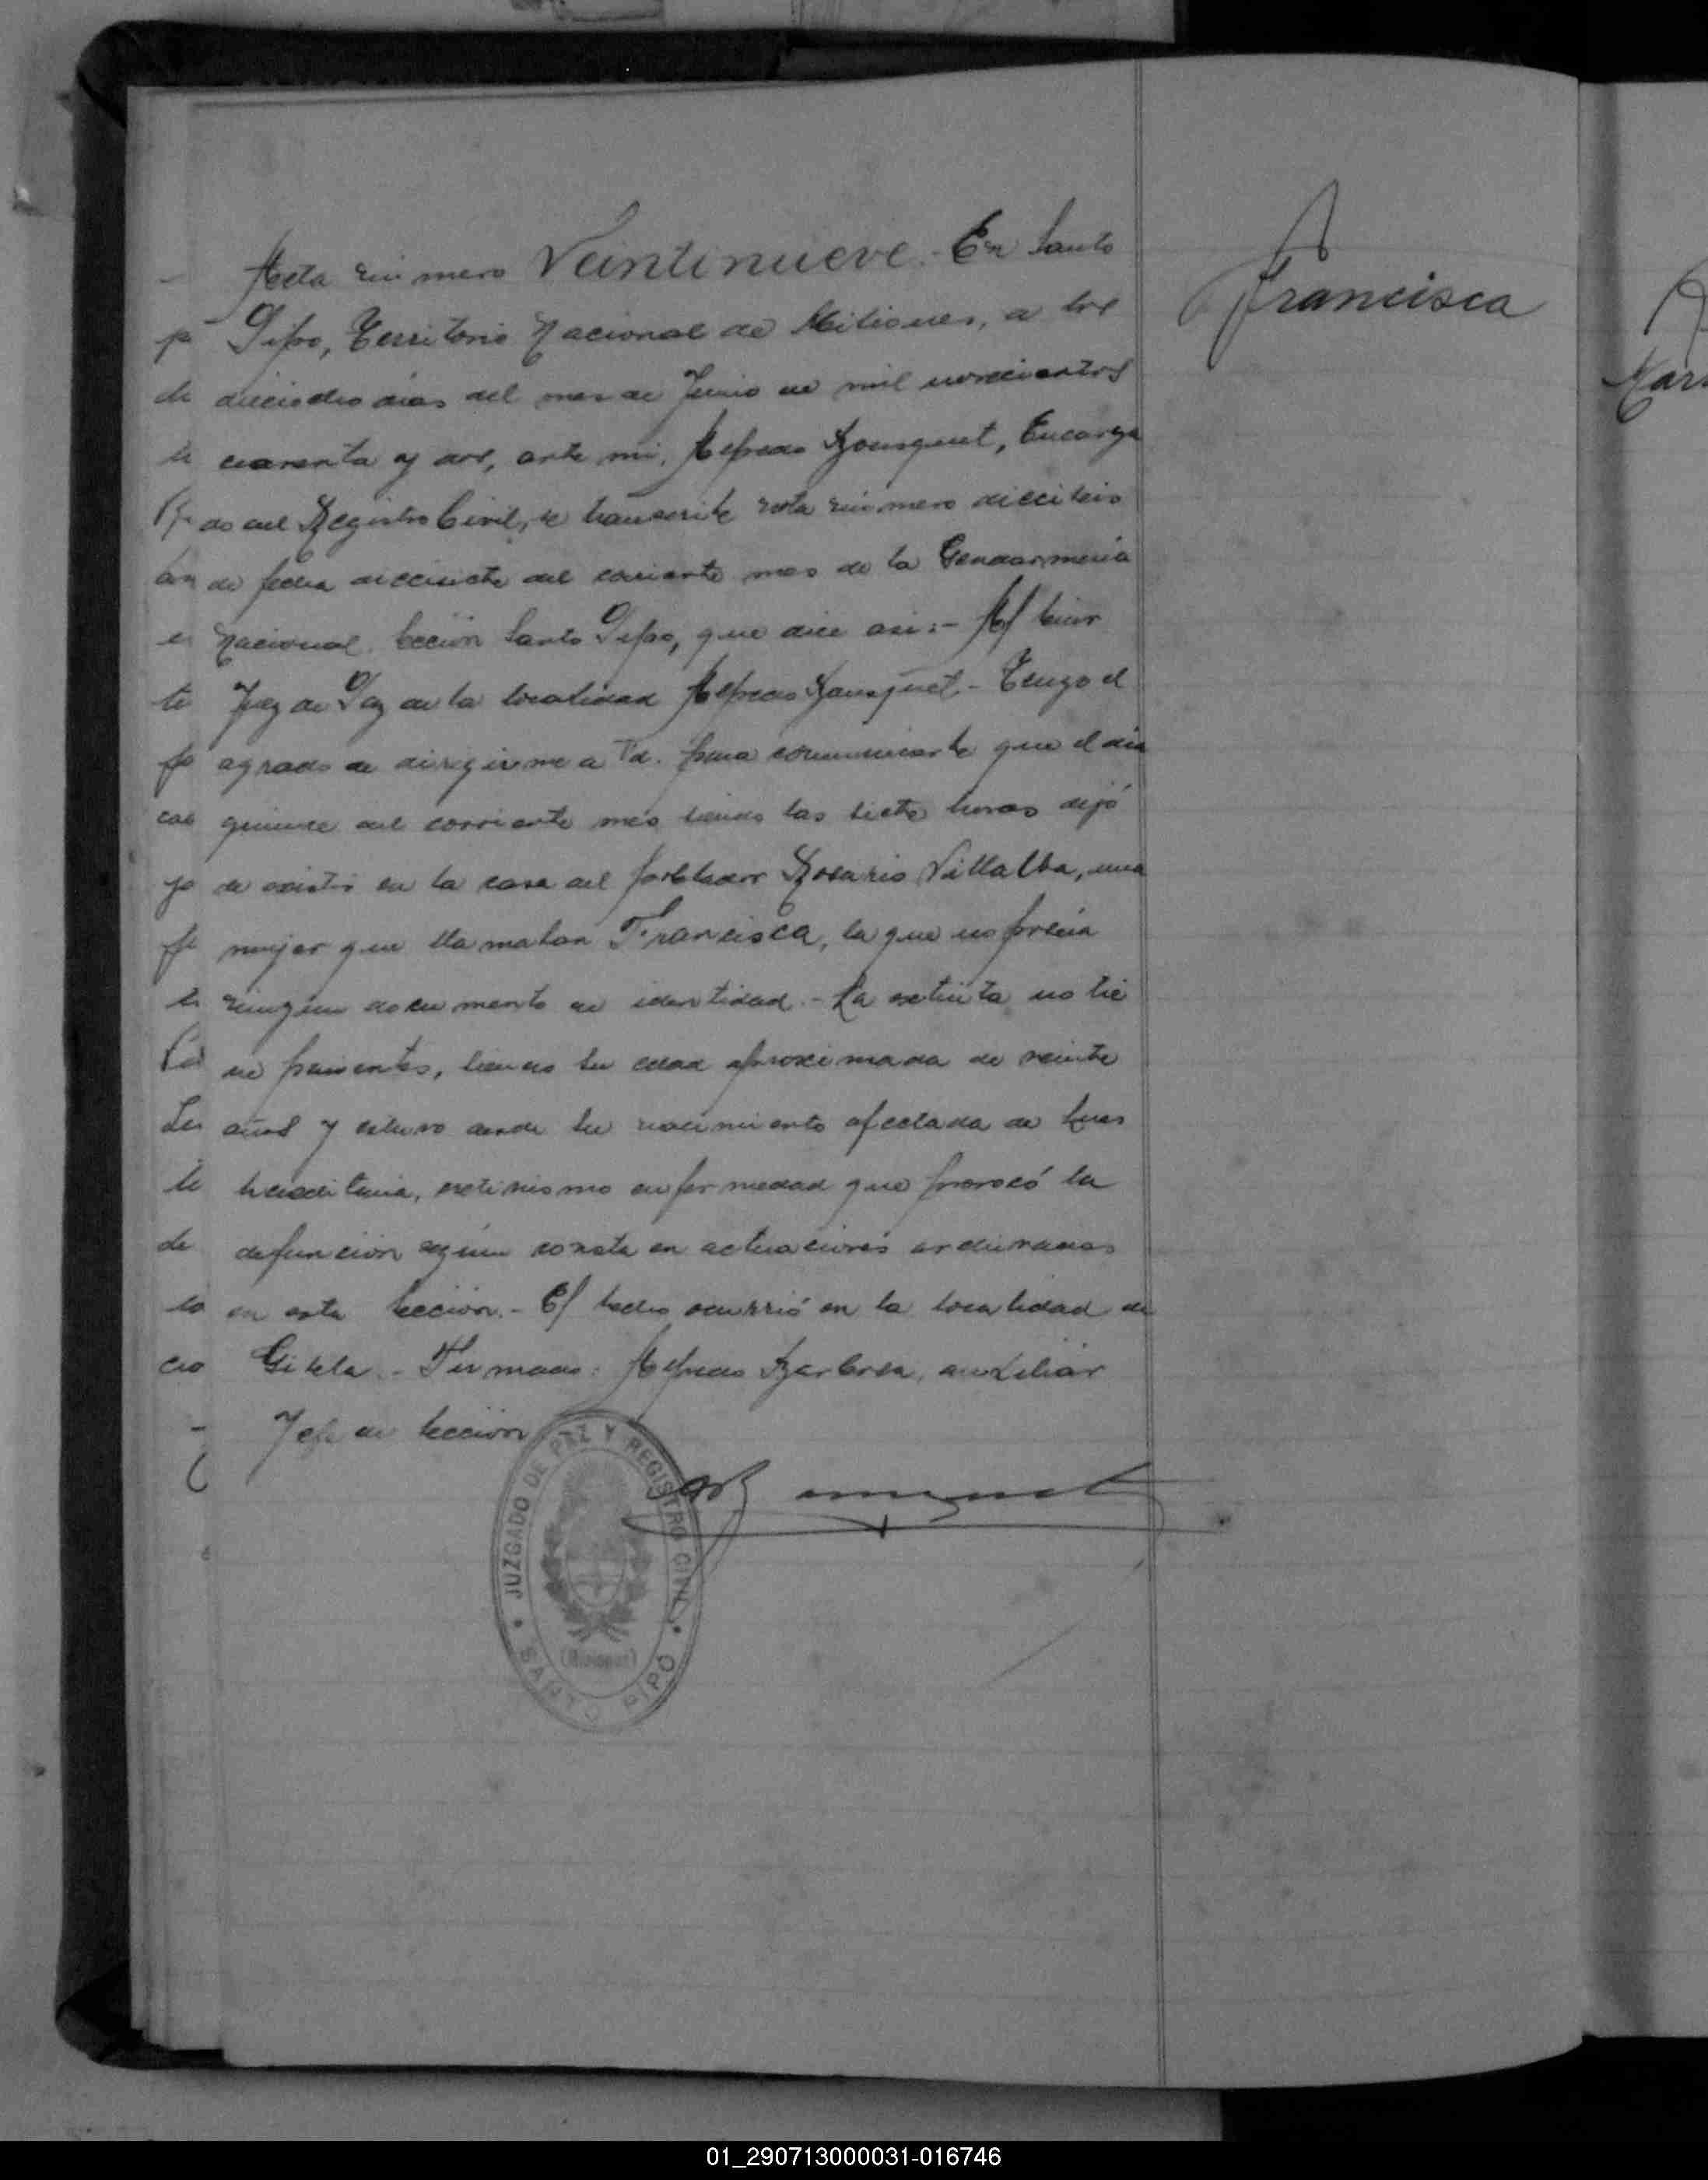 Acta número Veintinueve.- En Santo
Pipo, Territorio Nacional de Misiones, a los
dieciocho dias del mes de Junio de mil novecientos
cuarenta y dos, ante mi, Alfredo Bousquet, Encarga
do del Registro Civil, se transcribe nota número dieciseis
de fecha diecisiete del corriente mes de la Gendarmeria
Nacional Sección Santo Pipo, que dice asi:- Al Señor
Juez de Paz de la localidad Alfredo Bousquet - Tengo el
agrado de dirigirme a Vd. para comunicarle que el dia
quince del corriente mes siendo las siete horas dejó
de existir en la casa del poblador Rosario Villalba, una
mujer que llamaban Francisca, la que no poseia
ningun documento de identidad.- La extinta no tie
ne parientes, siendo su edad aproximada de veinte
años y estuvo desde su nacimiento afectada de lues
hereditaria, cretinismo enfermedad que provocó su
defunción según consta en actuaciones
en esta Sección.- El hecho ocurrió en la localidad de
Gisela.- Firmado: Alfredo Barbosa, auxiliar
Jefe de Sección
Francisca
JUZGADO DE PAZ Y REGISTRO CIVIL
SANTO PIPÓ
(Misiones)
01_290713000031-016746